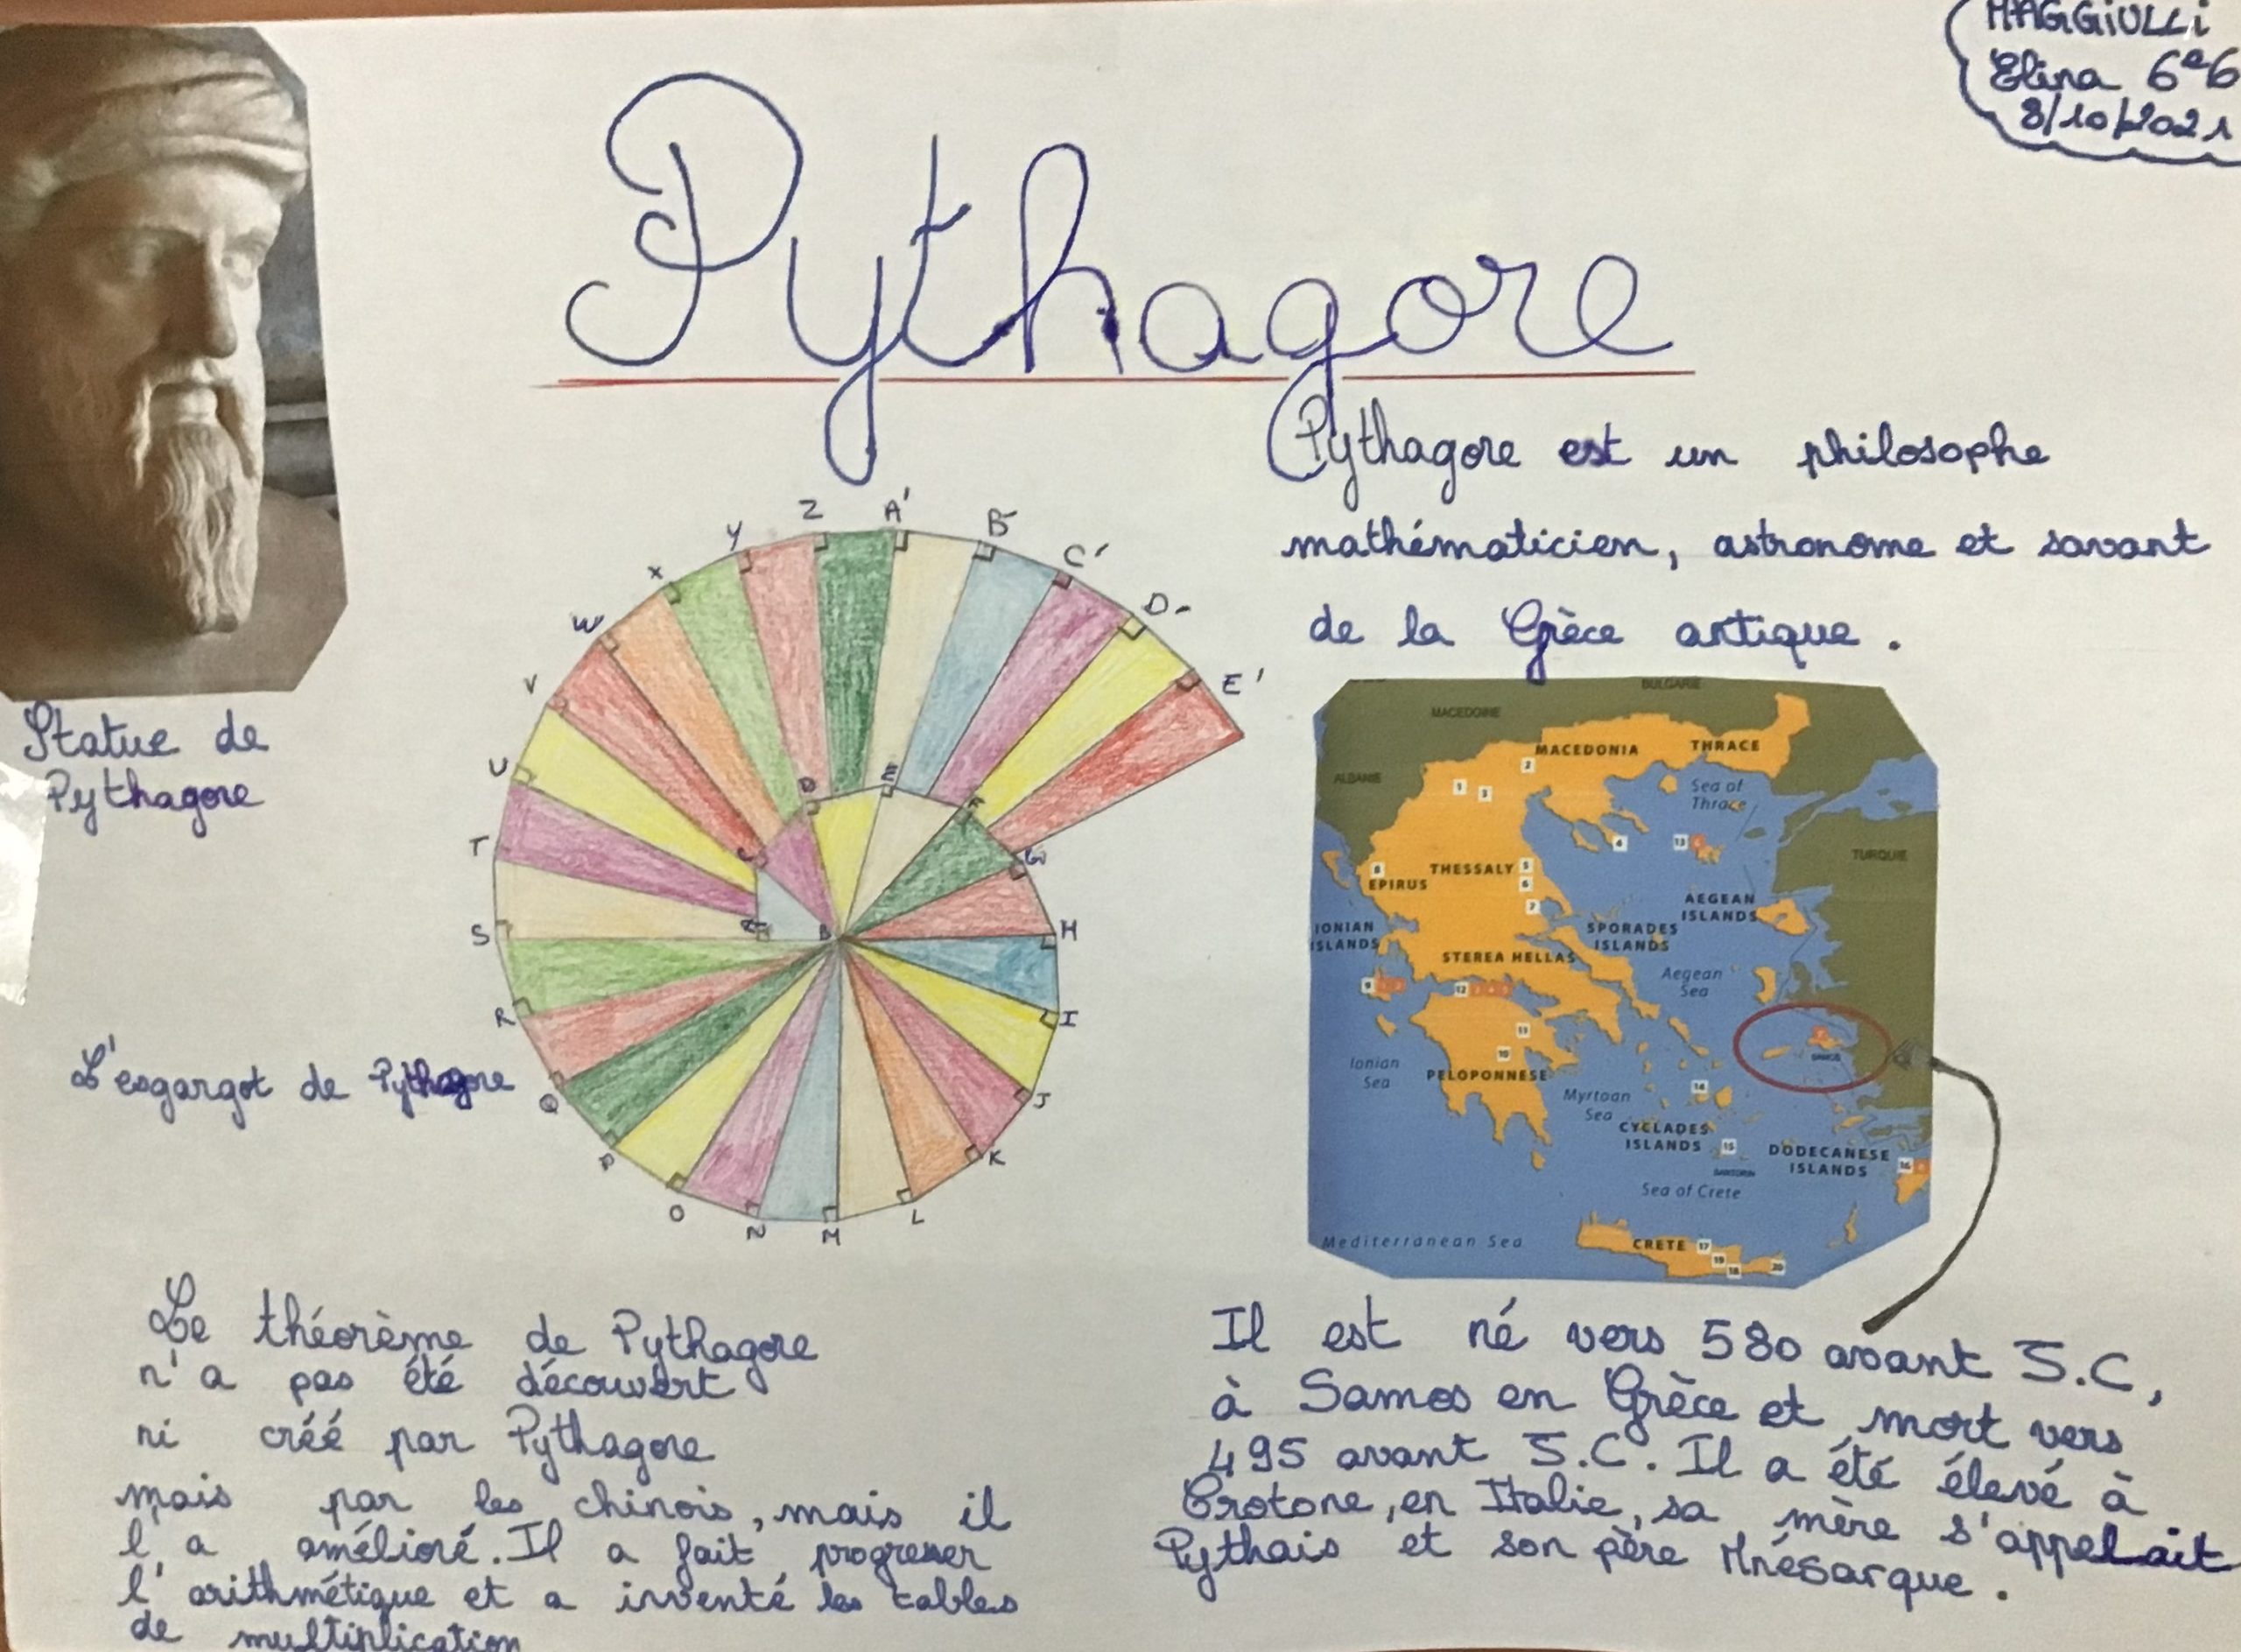 MAGGiULLi
Elina 6e6
8/10/2021
Pythagore
Pythagore est un philosophe
mathématicien, astronome et savant
de la Grèce antique.
Statue de
Pythagore
L'esgargot de Pythagore
Z
A'
B'
C'
D'
E'
Y
X
W
V
U
T
S
R
Q
P
O
N
M
L
K
J
I
H
G
F
E
D
C
B
BULGARIE
MACEDOINE
MACEDONIA
THRACE
ALBANIE
2
1
3
Sea of
Thrace
4
13
TURQUIE
THESSALY
5
8
EPIRUS
6
7
AEGEAN
ISLANDS
IONIAN
ISLANDS
SPORADES
ISLANDS
STEREA HELLAS
Aegean
Sea
9
12
11
10
SAMOS
Ionian
Sea
PELOPONNESE
14
Myrtoan
Sea
CYCLADES
ISLANDS
15
SANTORIN
DODECANESE
ISLANDS
16
Sea of Crete
Mediterranean Sea
CRETE
17
19
18
20
Le théorème de Pythagore
n'a pas été découvert
ni créé par Pythagore
mais par les chinois, mais il
l'a amélioré. Il a fait progresser
l'arithmétique et a inventé les tables
de multiplication
Il est né vers 580 avant J.C,
à Samos en Grèce et mort vers
495 avant J.C. Il a été élevé à
Crotone, en Italie, sa mère s'appelait
Pythais et son père Mnésarque.